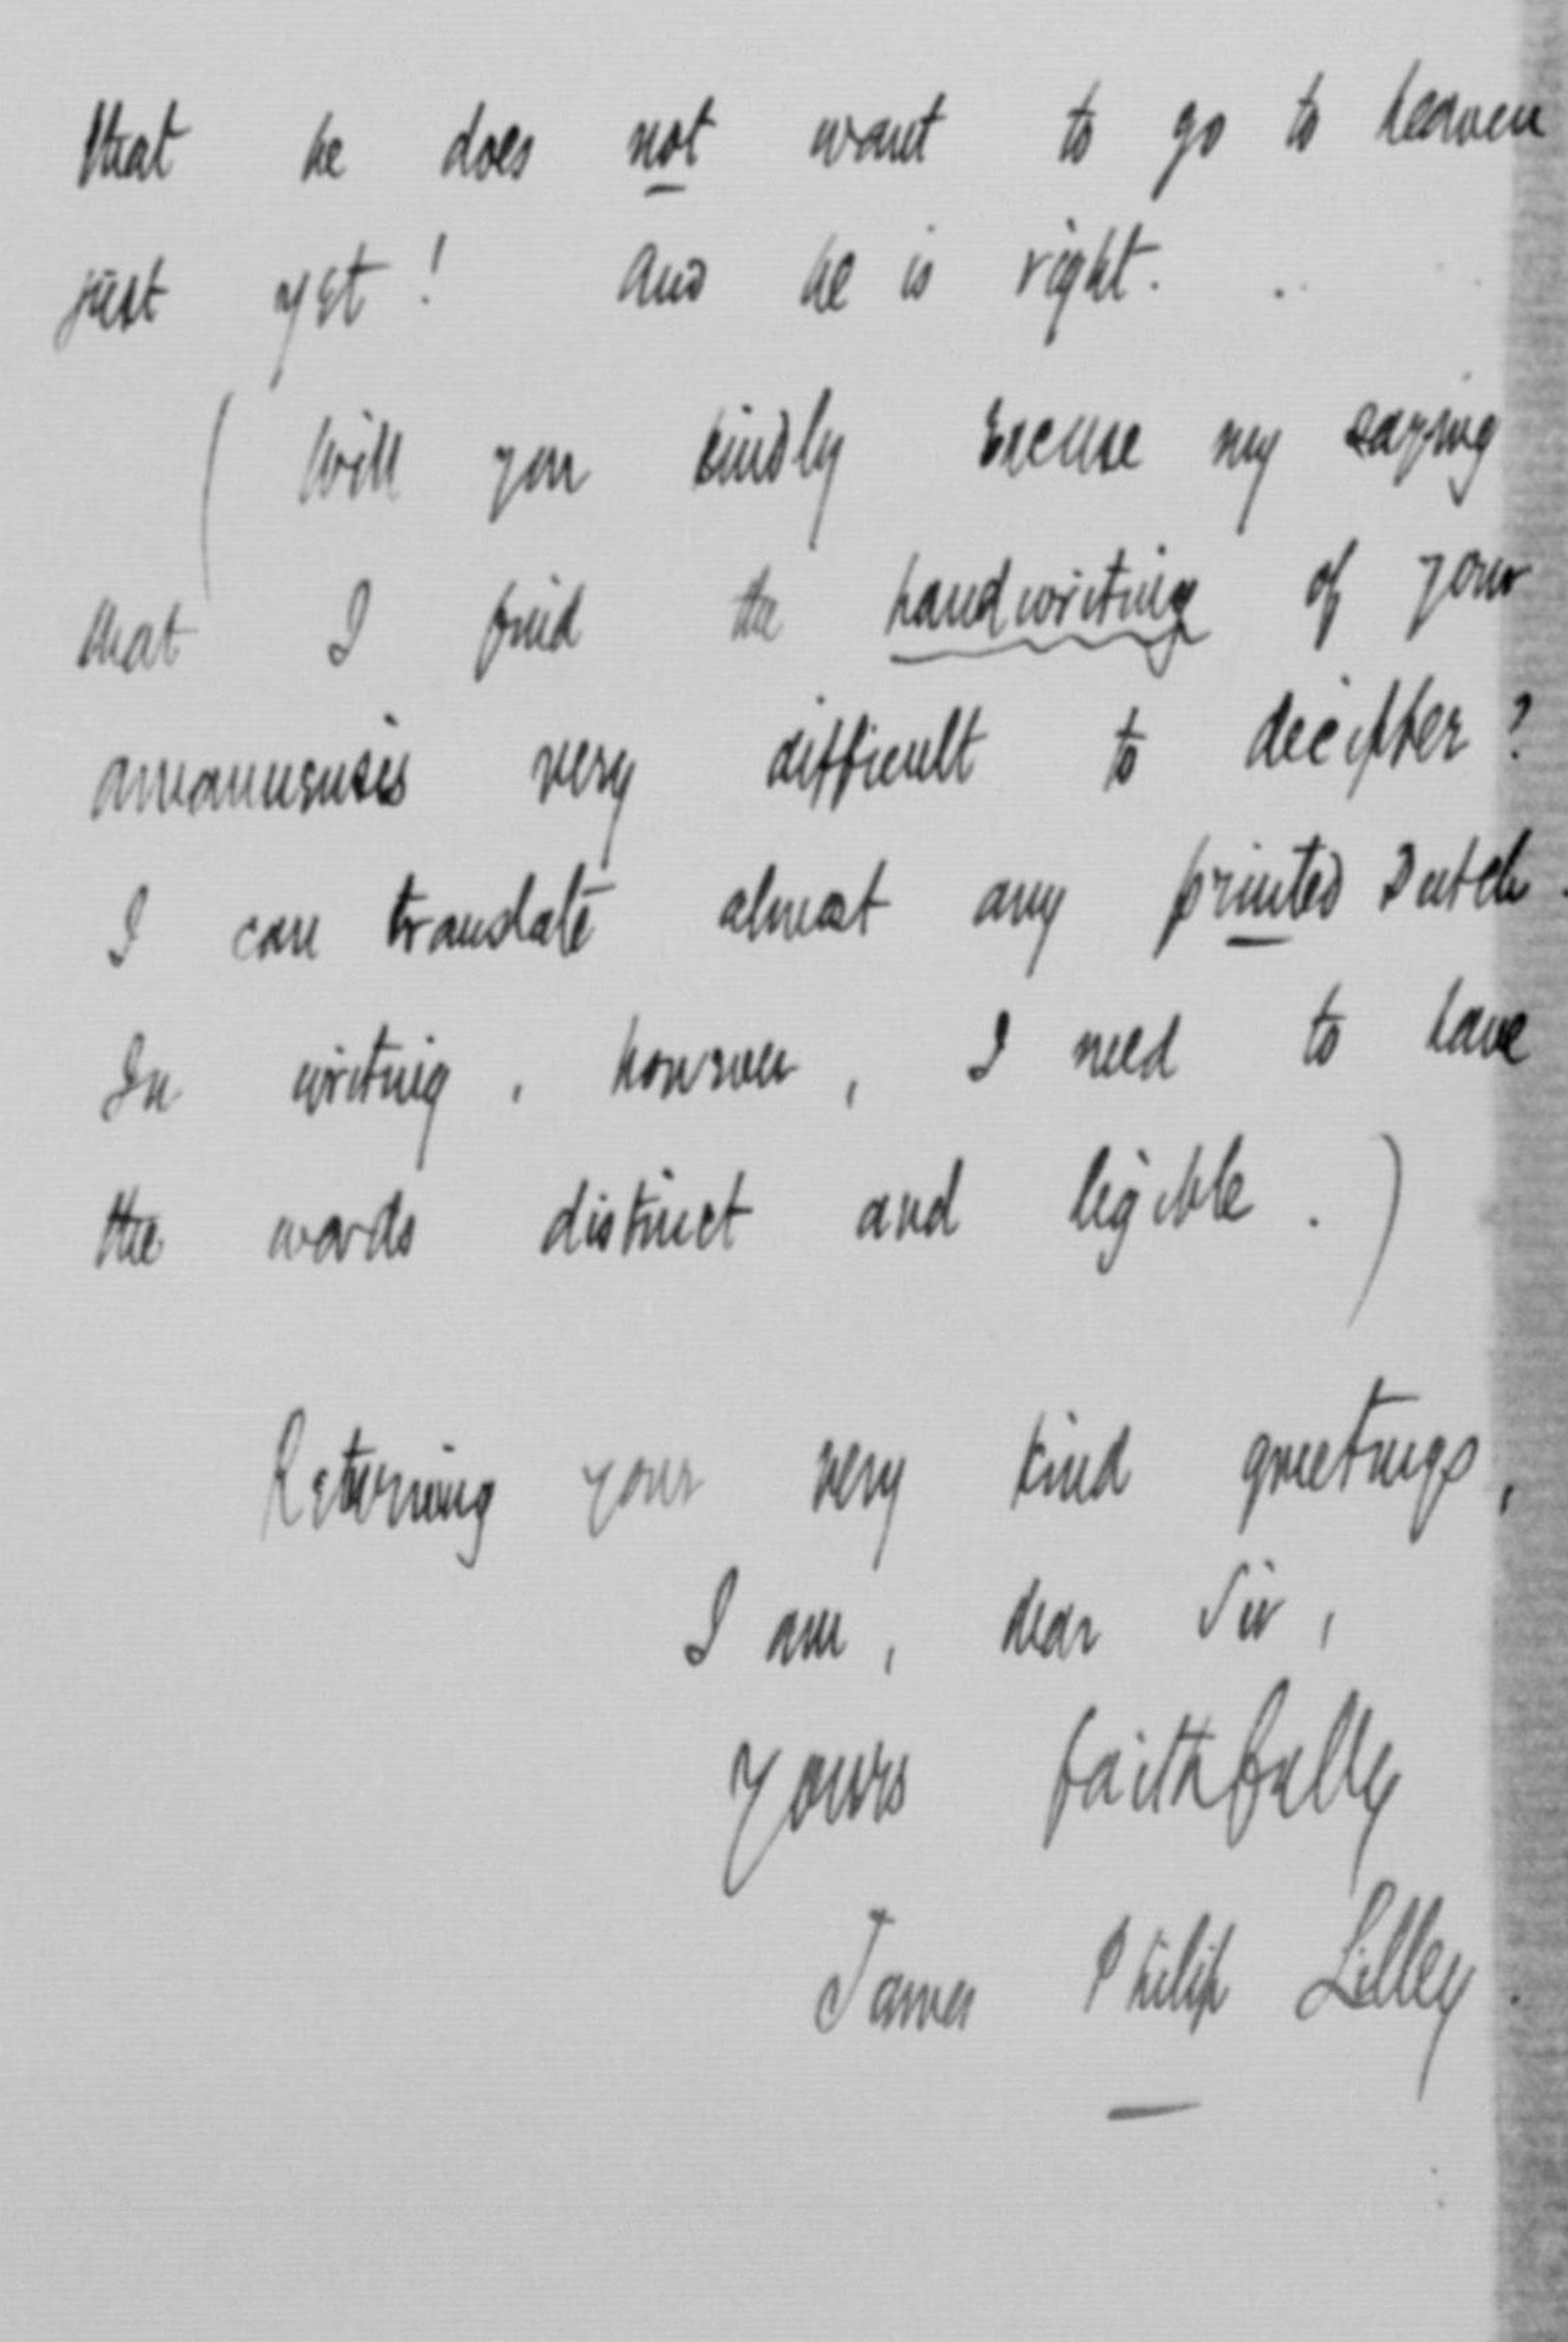 that he does not want to go to heaven
just yet! And he is right.
( Will you kindly excuse my saying
that I find the handwriting of your
amanuensis very difficult to decipher?
I can translate almost any printed Dutch.
In writing, however, I need to have
the words distinct and legible.)
Returning your very kind greetings,
I am, dear Sir,
Yours faithfully
James Philip Lilley.